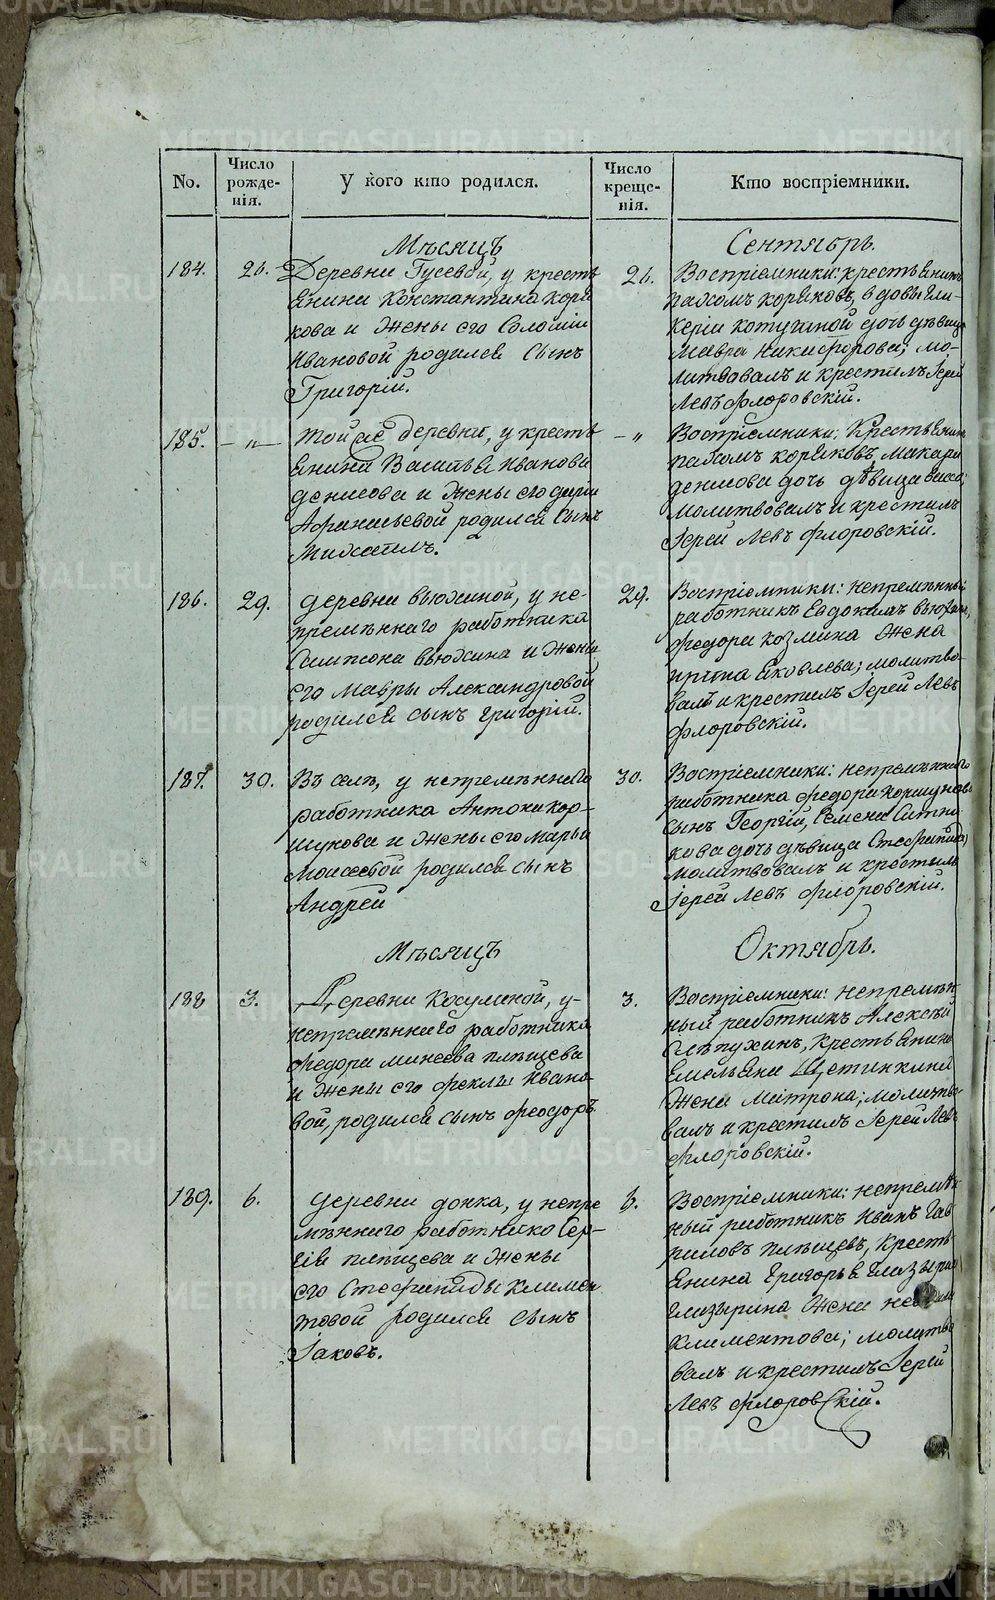 No.
Число рожде-нія.
У кого кто родился.
Число креще-нія.
Кто воспріемники.
Мѣсяцъ
Сентябрь.
184.
26.
Деревни Гусевой, у кресть
янина Константина Коря
кова и жены его Соломіи
Ивановой родился сынъ
Григорій.
26.
Воспріемники: крестьянинъ
Пахомъ Коряковъ, вдовы Гли-
керіи Котугиной дочь дѣвица
Мавра Никифорова; мо-
литвовалъ и крестилъ Іерей
Левъ Флоровскій.
185.
— „ —
той же деревни, у кресть
янина Василья Иванова
Денисова и жены его Дарьи
Афанасьевой родился сынъ
Михаилъ.
— „
Воспріемники: Крестьянинъ
Пахомъ Коряковъ, Макара
Денисова дочь дѣвица
молитвовалъ и крестилъ
Іерей Левъ Флоровскій.
186.
29.
деревни Вьюхиной, у не-
премѣннаго работника
Самсона Вьюхина и жены
его Мавры Александровой
родился сынъ Григорій.
29.
Воспріемники: непремѣнный
работникъ Евдокимъ Вьюхинъ,
Федора Козмина жена
Ирина Яковлева; молитво-
валъ и крестилъ Іерей Левъ
Флоровскій.
187.
30.
Въ селѣ, у непремѣннаго
работника Антона Кор-
шукова и жены его Марьи
Моисеевой родился сынъ
Андрей
30.
Воспріемники: непремѣннаго
работника Федора Коршунова
сынъ Георгій, Семена Ситни
кова дочь дѣвица Стефанида;
молитвовалъ и крестилъ
Іерей Левъ Флоровскій.
Мѣсяцъ
Октябрь.
188
3.
Деревни Косулиной, у
непремѣннаго работника
Федора Минеева Плѣщева
и жены его Феклы Ивано
вой, родился сынъ Феодоръ
3.
Воспріемники: непремѣн
ный работникъ Алексѣй
Слѣпухинъ, крестьянина
Емельяна Щетинкина
жена Матрона; молитво
валъ и крестилъ Іерей Левъ
Флоровскій.
189.
6.
деревни Донка, у непре
мѣннаго работника Сер-
гія Плѣщева и жены
его Стефаниды Климен
товой родился сынъ
Іаковъ.
6.
Воспріемники: непремѣн
ный работникъ Иванъ Гав
риловъ Плѣщевъ, кресть
янина Григорья Глазырин
Глазырина жена
Климентова; молитво
валъ и крестилъ Іерей
Левъ Флоровскій.
METRIKI.GASO-URAL.RU